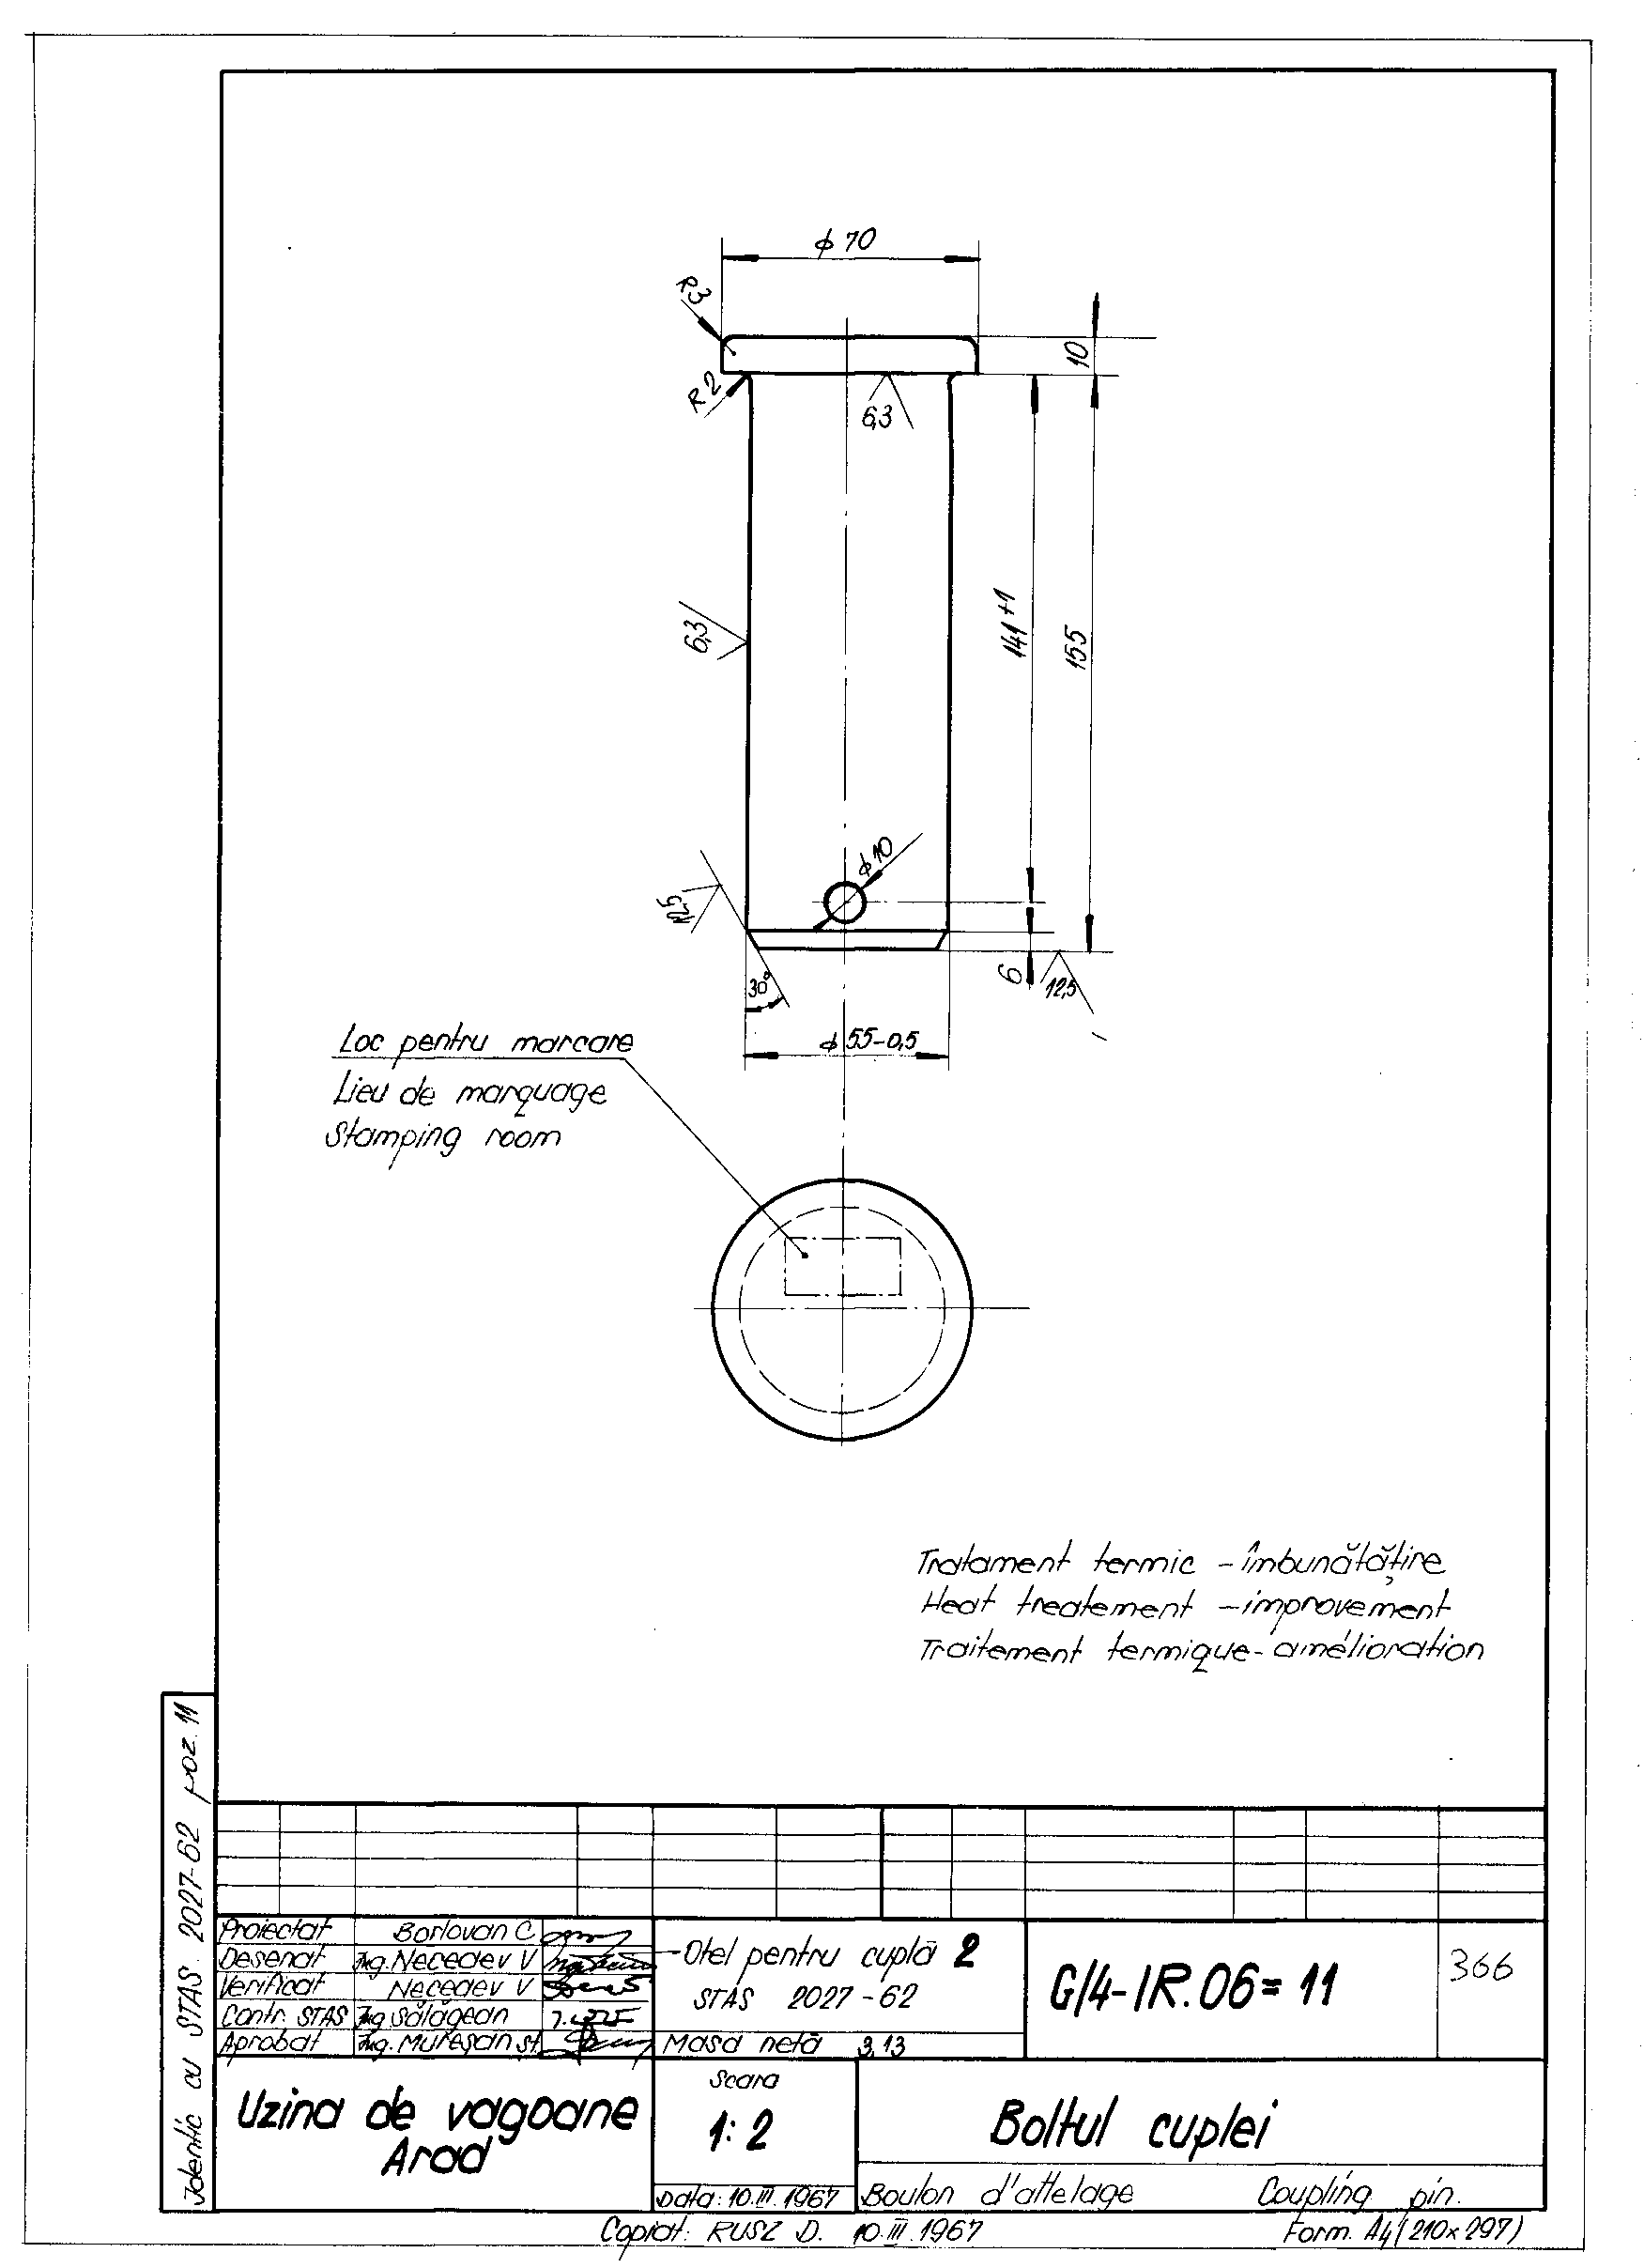 ϕ 70
R3
10
R2
6,3
6,3
141 +1
155
ϕ 10
12,5
30°
6
12,5
ϕ 55-0,5
Loc pentru marcare
Lieu de marquage
Stamping room
Tratament termic - îmbunătăţire
Heat treatement - improvement
Traitement termique - amélioration
Identic cu STAS 2027-62 poz. 11
Proiectat Borlovan C
Desenat Ing. Necedev V
Verificat Necedev V
Contr. STAS Ing Sălăgean
Aprobat Ing. Mureşan St.
Otel pentru cuplă 2
STAS 2027-62
Masa netă 3,13
G/4-IR.06=11
366
Uzina de vagoane
Arad
Scara
1:2
Data: 10.III.1967
Boltul cuplei
Boulon d'attelage Coupling pin.
Copiat: RUSZ D. 10.III.1967 Form. A4 (210x297)